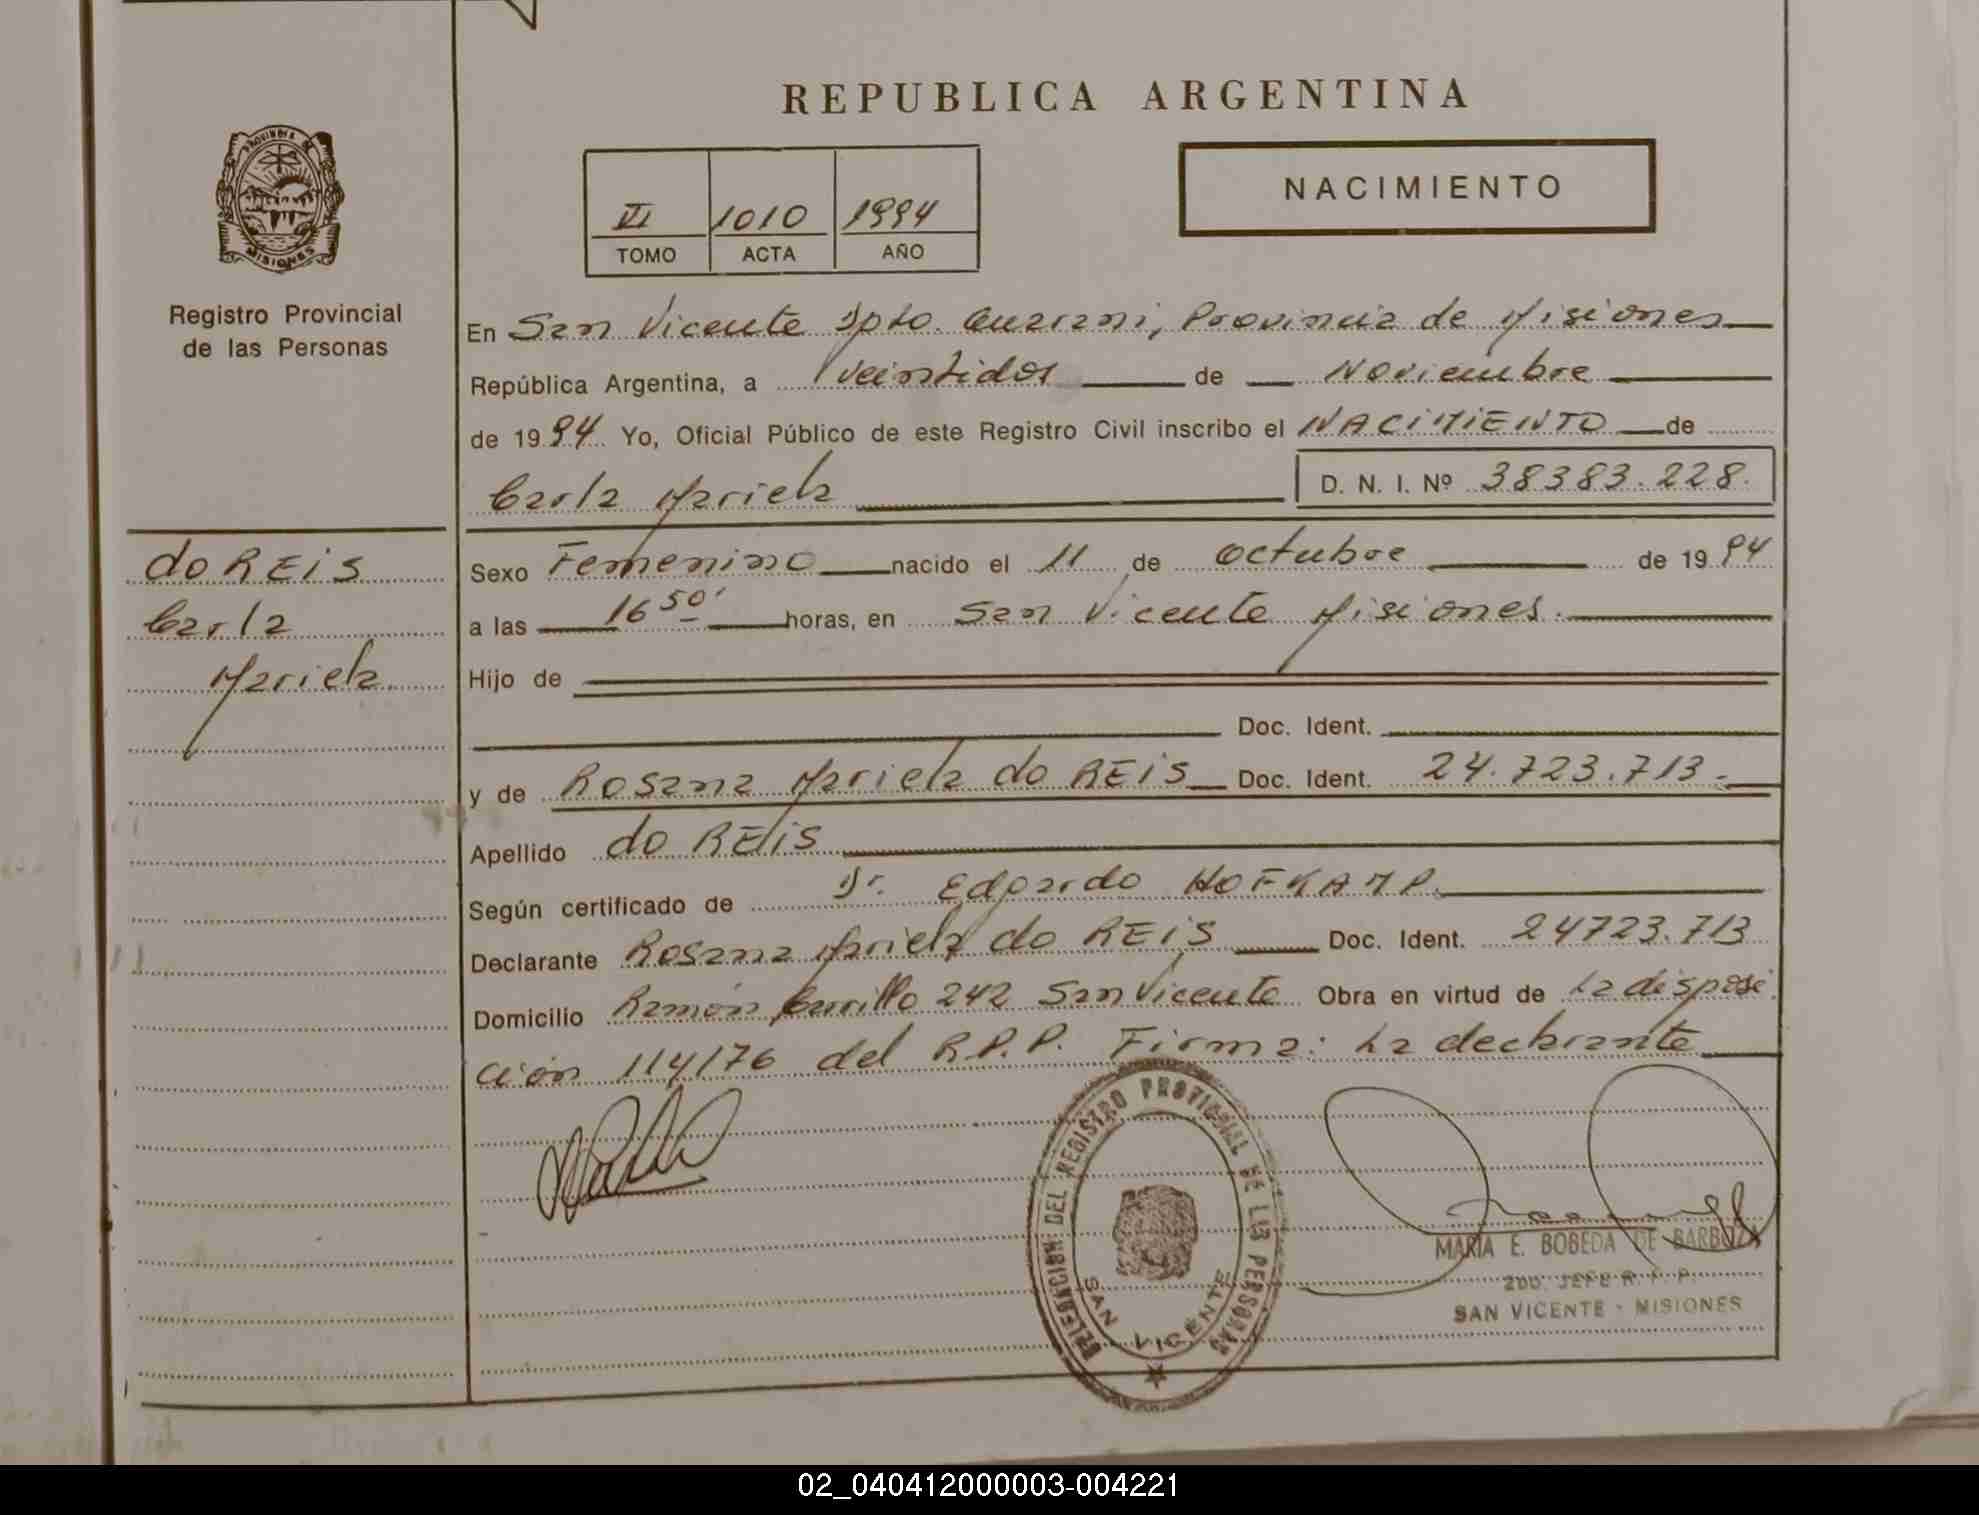 REPUBLICA ARGENTINA
PROVINCIA DE
MISIONES
Registro Provincial
de las Personas
VI 1010 1994
TOMO ACTA AÑO
NACIMIENTO
En San Vicente Dpto. Guarani, Provincia de Misiones
República Argentina, a veintidos de Noviembre
de 1994 Yo, Oficial Público de este Registro Civil inscribo el NACIMIENTO de
Carla Mariela D. N. I. Nº 38383.228.
do REIS
Carla
Mariela
Sexo Femenino nacido el 11 de octubre de 1994
a las 16 50' horas, en San Vicente Misiones.
Hijo de
Doc. Ident.
y de Rosana Mariela do REIS Doc. Ident. 24.723.713.-
Apellido do REIS
Según certificado de Dr. Edgardo HOFKAMP.
Declarante Rosana Mariela do REIS Doc. Ident. 24723.713
Domicilio Ramón Carrillo 242 San Vicente Obra en virtud de la disposi
ción 114/76 del R.P.P. Firma: La declarante
DELEGACION DEL REGISTRO PROVINCIAL DE LAS PERSONAS
SAN VICENTE
MARIA E. BOBEDA DE BARBOZA
2DO. JEFE R. P. P.
SAN VICENTE - MISIONES
02_040412000003-004221